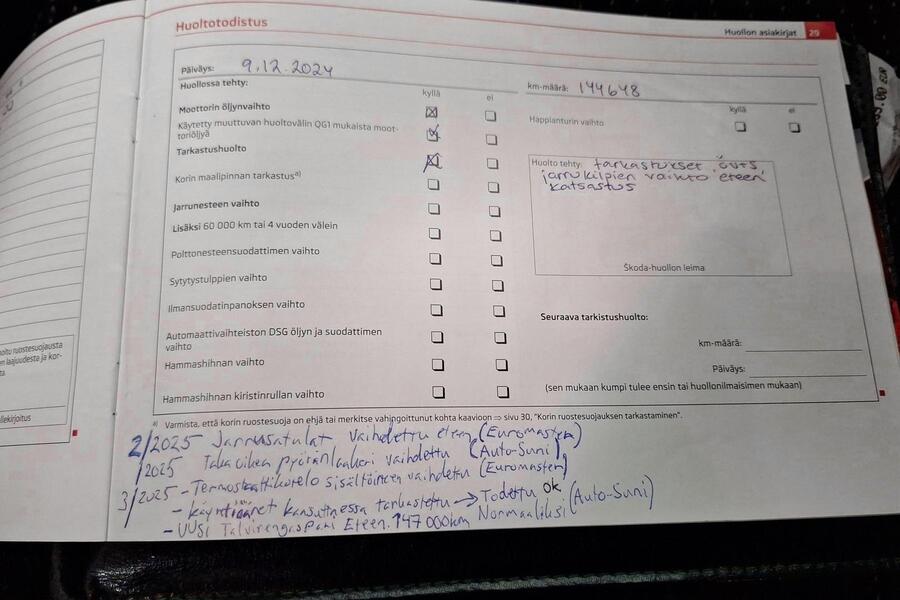 Huoltotodistus
Huollon asiakirjat 29
Päiväys: 9.12.2024
km-määrä: 144648
Huollossa tehty:
kyllä ei
kyllä ei
Moottorin öljynvaihto
Happianturin vaihto
Käytetty muuttuvan huoltovälin QG1 mukaista moot-
toriöljyä
Tarkastushuolto
Huolto tehty: tarkastukset
jarrukilpien vaihto eteen
katsastus
Korin maalipinnan tarkastus a)
Jarrunesteen vaihto
Lisäksi 60 000 km tai 4 vuoden välein
Polttonesteensuodattimen vaihto
Škoda-huollon leima
Sytytystulppien vaihto
Ilmansuodatinpanoksen vaihto
Seuraava tarkistushuolto:
Automaattivaihteiston DSG öljyn ja suodattimen
vaihto
km-määrä:
Hammashihnan vaihto
Päiväys:
Hammashihnan kiristinrullan vaihto
(sen mukaan kumpi tulee ensin tai huollonilmaisimen mukaan)
a) Varmista, että korin ruostesuoja on ehjä tai merkitse vahingoittunut kohta kaavioon ⇒ sivu 30, "Korin ruostesuojauksen tarkastaminen".
2/2025 Jarrusatulat vaihdettu eteen (Euromaster)
/2025 Takaoikea pyöränlaakeri vaihdettu (Auto-Suni)
3/2025 - Termostaattikotelo sisältöineen vaihdettu (Euromaster)
- käyntiäänet kansutinessa tarkastettu → Todettu ok. (Auto-Suni)
Normaaliksi
- UUSi Talvirengaspari Eteen. 147 000km